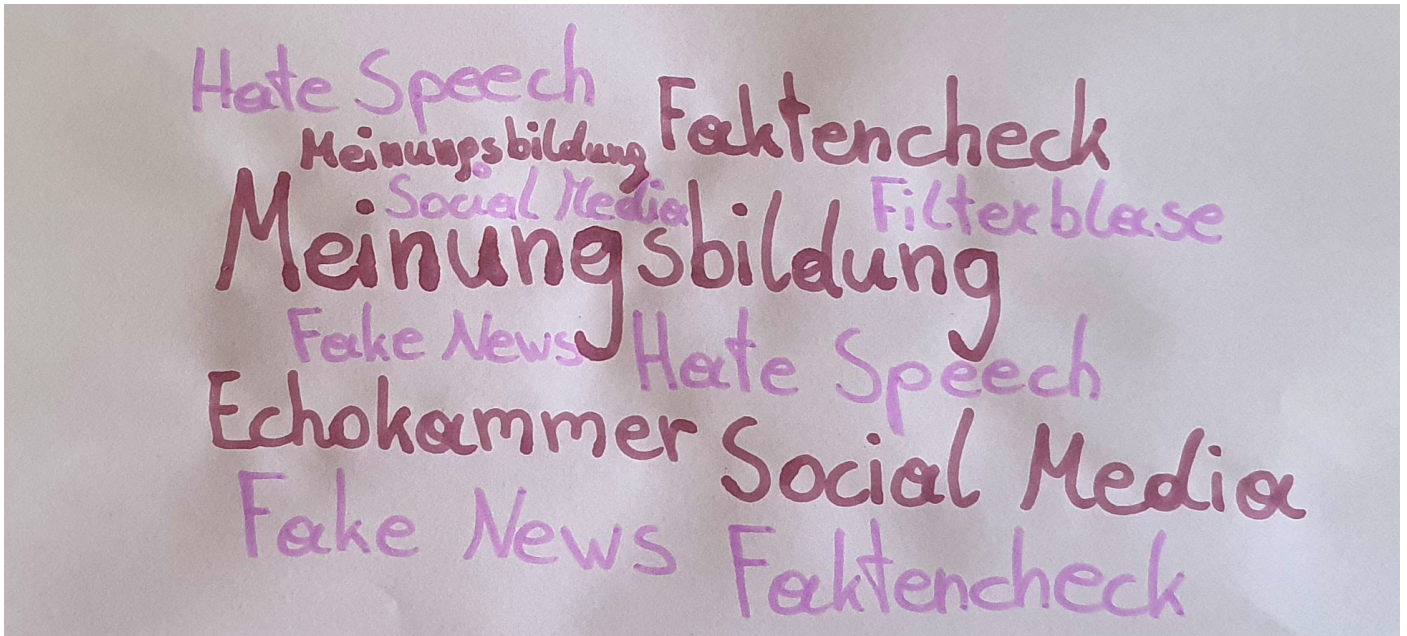 Hate Speech
Meinungsbildung Faktencheck
Social Media Filterblase
Meinungsbildung
Fake News Hate Speech
Echokammer Social Media
Fake News Faktencheck